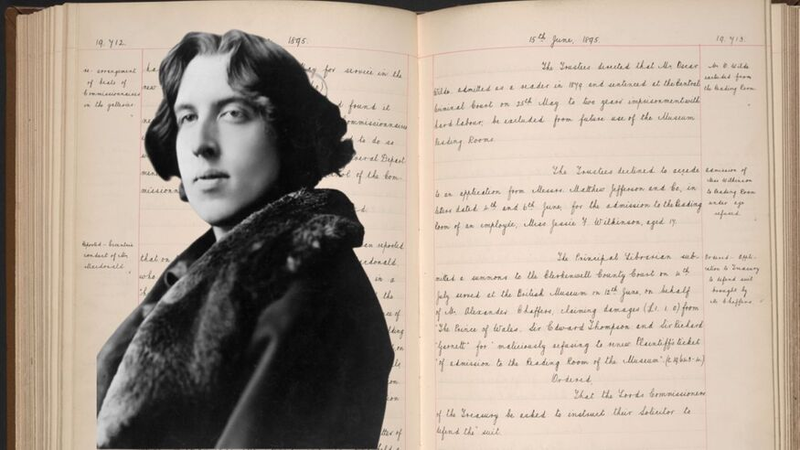 19,412.
1895.
re- arrangement
of beats of
Commissionaires
in the galleries
for service in the
found it
ommissionaires
to do so
of the Com-
mission
Reported - Eccentric
conduct of Mr
Macdonald
that on
who
en reported
acdonald
in a
the
15th June, 1895.
19,413.
The Trustees directed that Mr Oscar
Wilde admitted as a reader in 1879 and sentenced at the Central
Criminal Court on 25th May to two years imprisonment with
hard labour, be excluded from future use of the Museum
Reading Rooms
Mr O. Wilde
excluded from
the Reading Room
The Trustees declined to accede
to an application from Messrs. Matthew Jefferson and Co, in
letters dated 4th and 6th June, for the admission to the Reading
Room of an employee, Miss Jessie F. Wilkinson, aged 17.
Admission of
Miss Wilkinson
to Reading Room
under age
refused
The Principal Librarian sub-
mitted a summons to the Clerkenwell County Court on 4th
July served at the British Museum on 12th June, on behalf
of Mr. Alexander Chaffers, claiming damages (£1. 1. 0) from
"The Prince of Wales. Sir Edward Thompson and Sir Richard
Garnett" for "maliciously refusing to renew Plaintiff's ticket
"of admission to the Reading Room of the Museum".
Ordered
That the Lords Commissioners
of the Treasury be asked to instruct their Solicitor to
defend the suit.
Ordered - Appli-
cation to Treasury
to defend suit
brought by
Mr Chaffers